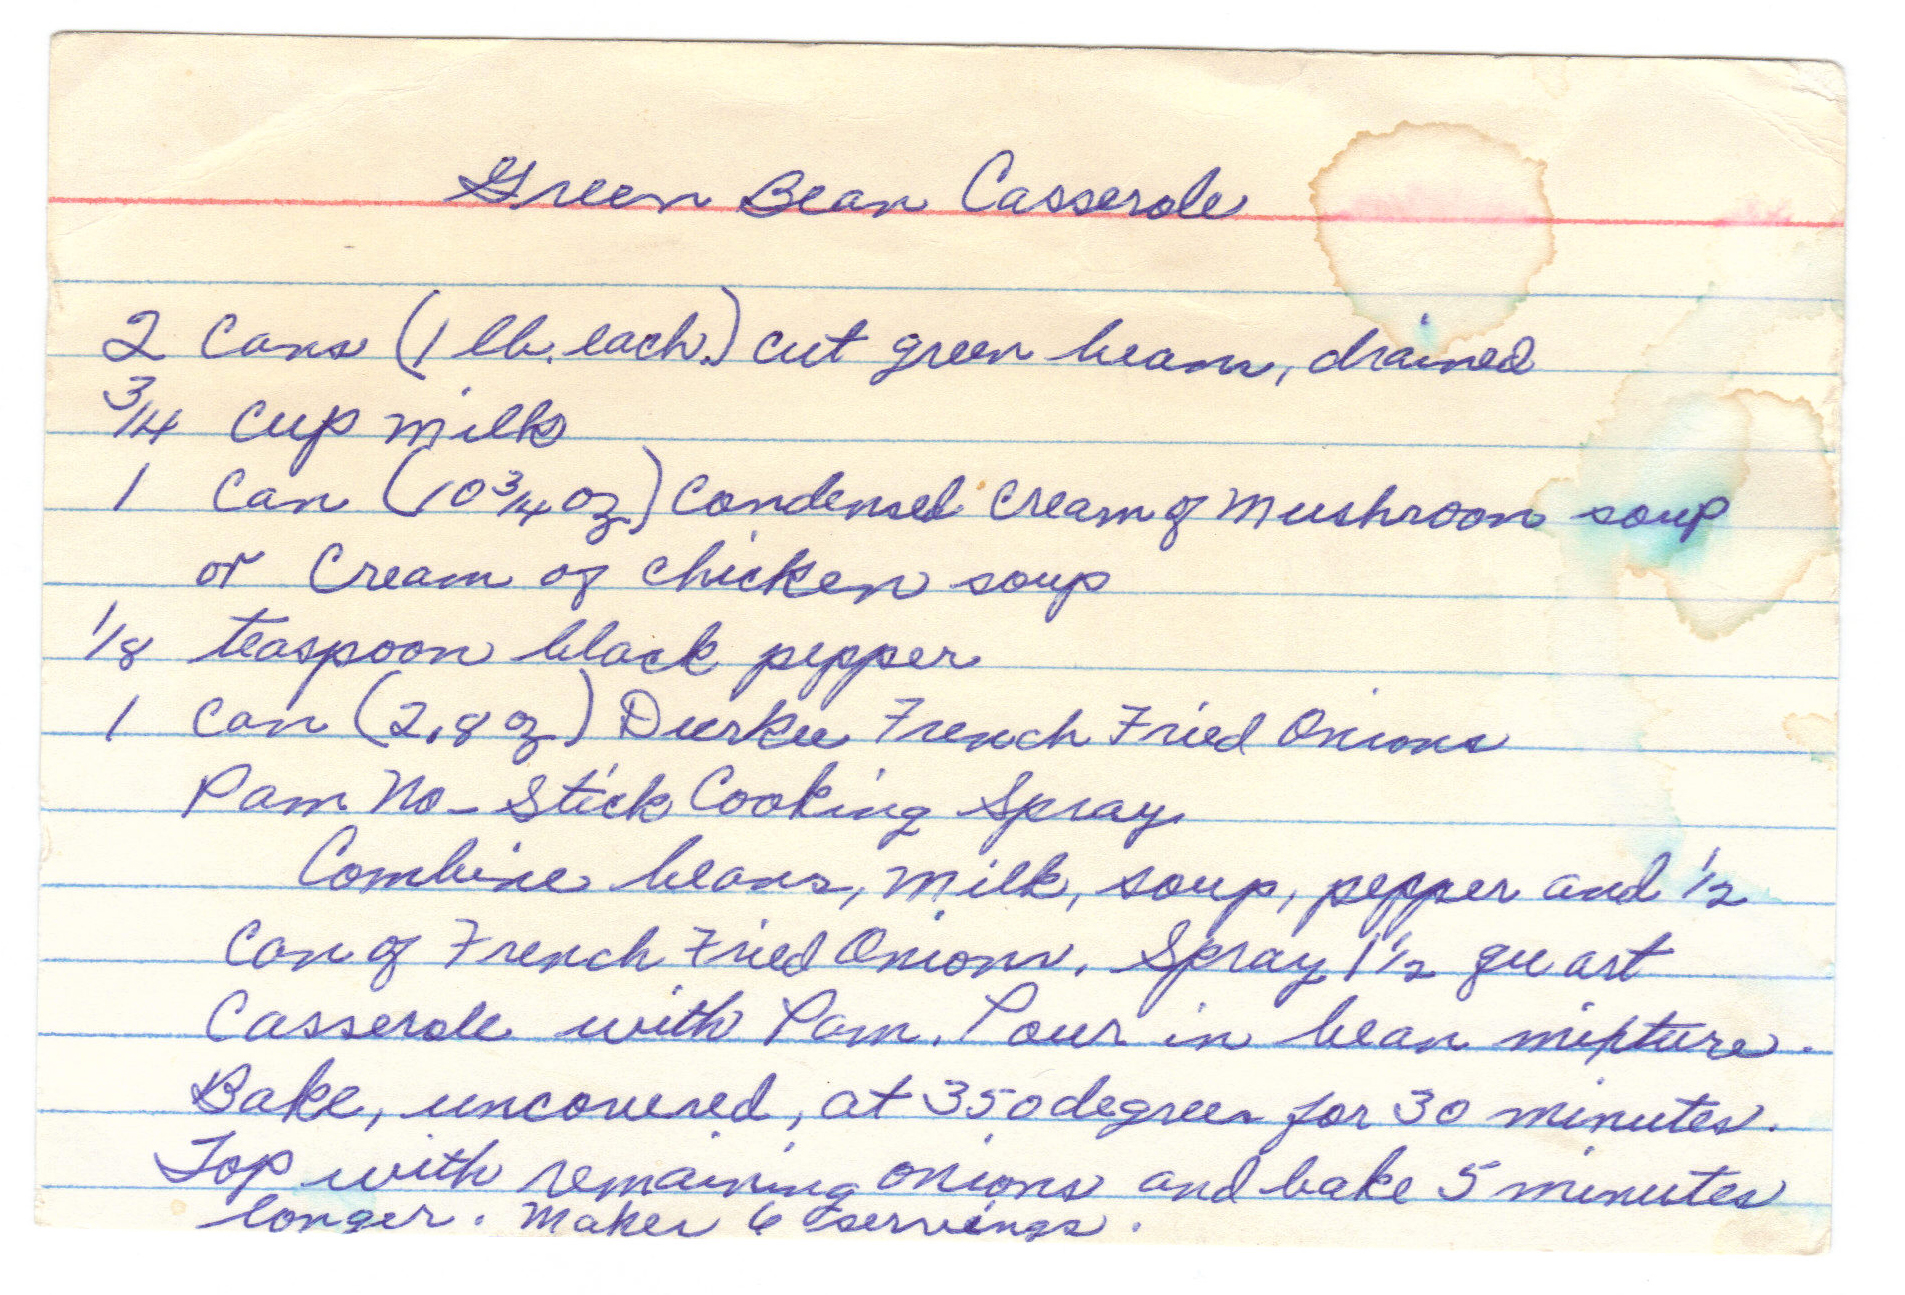 Green Bean Casserole
2 Cans (1 lb. each.) cut green beans, drained
3/4 cup milk
1 Can (10 3/4 oz) Condensed Cream of Mushroom soup
or Cream of chicken soup
1/8 teaspoon black pepper
1 can (2.8 oz) Durkee French Fried Onions
Pam No-Stick Cooking Spray.
Combine beans, milk, soup, pepper and 1/2
Can of French Fried Onions. Spray 1 1/2 quart
Casserole with Pam. Pour in bean mixture.
Bake, uncovered, at 350 degrees for 30 minutes.
Top with remaining onions and bake 5 minutes
longer. Makes 6 servings.